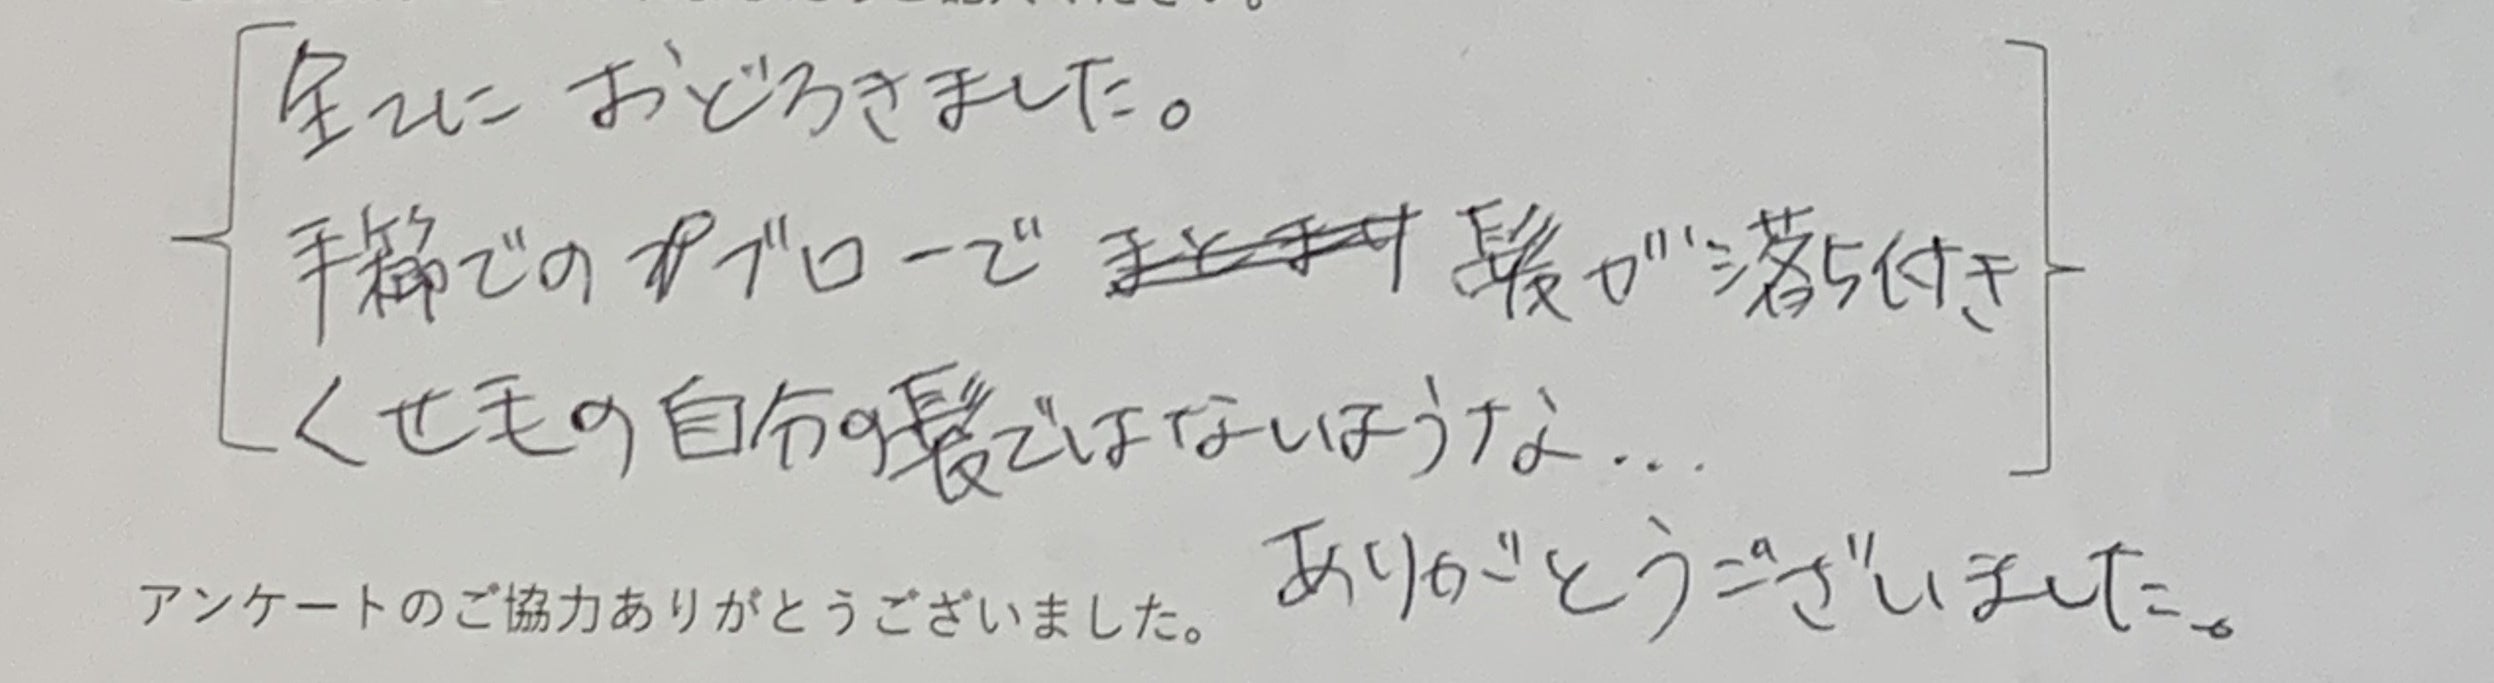 全てにおどろきました。
手櫛でのブローで髪が落ち付き
くせ毛の自分の髪ではないような...
ありがとうございました。
アンケートのご協力ありがとうございました。